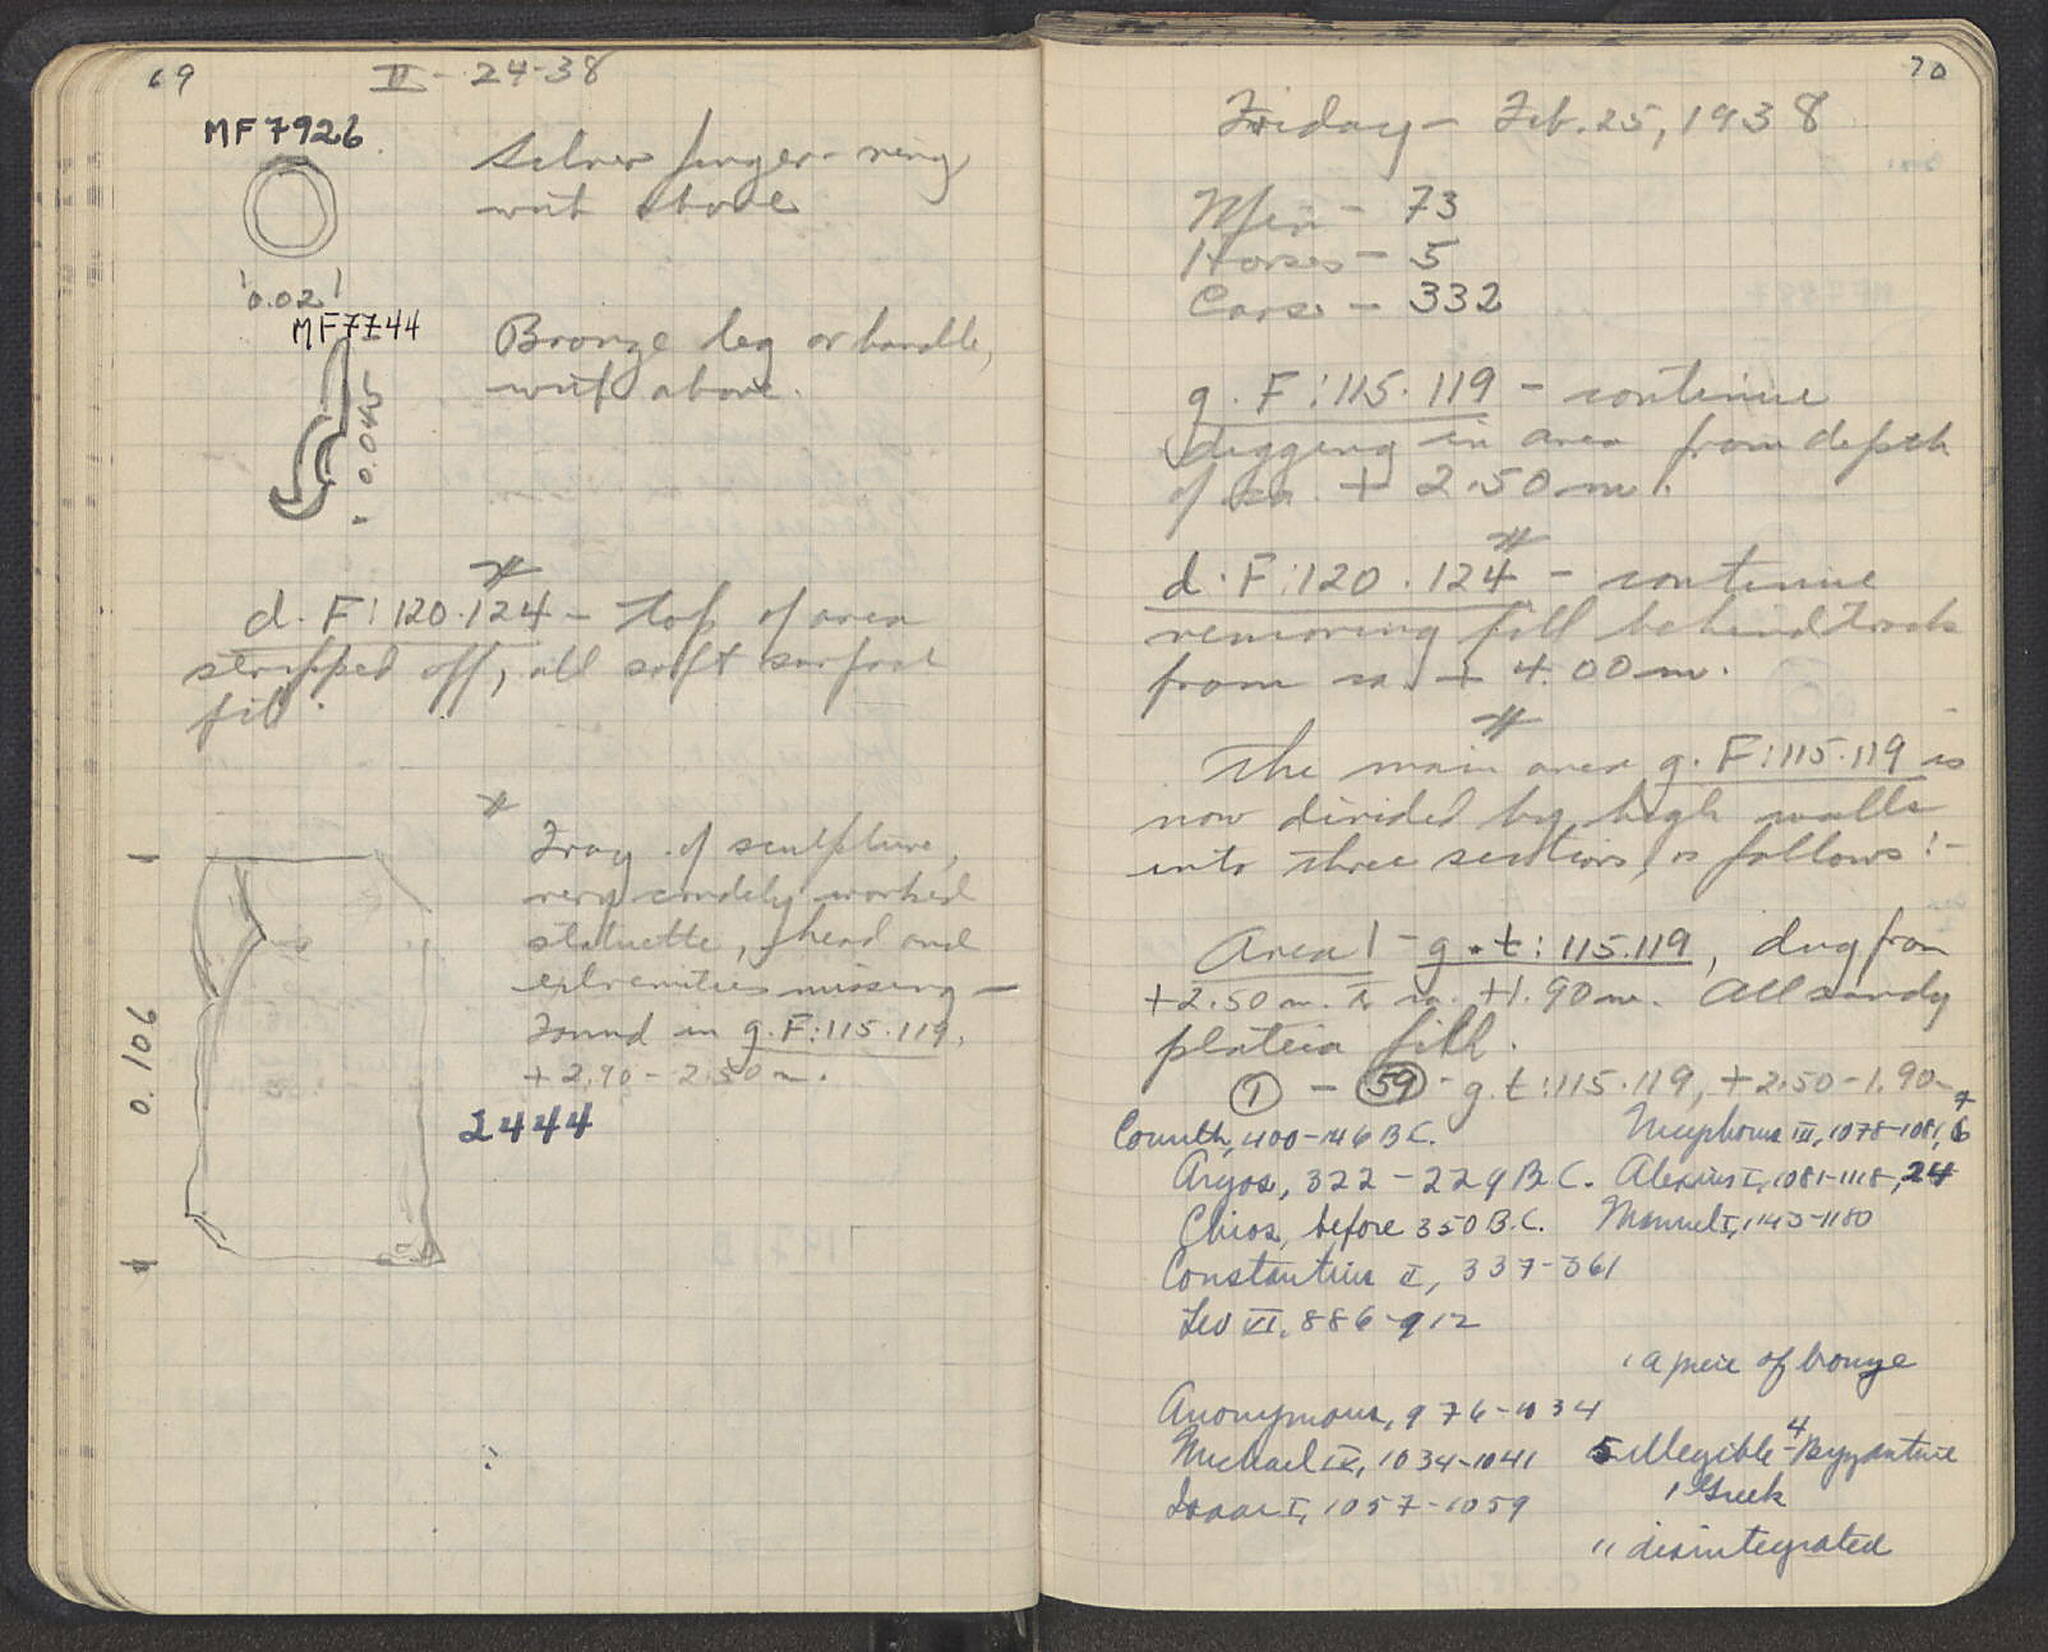 69
II - 24-38
MF 7926
Silver finger-ring
with above
0.02
MF 7744
Bronze leg or handle,
with above.
0.045
d. F: 120.124 - top of area
stripped off, all soft surface
fill.
Frag. of sculpture,
very crudely worked
statuette, head and
extremities missing -
Found in g. F: 115.119,
+ 2.90 - 2.50 m.
0.106
2444
70
Friday - Feb. 25, 1938
Men - 73
Horses - 5
Cars - 332
g. F: 115.119 - continue
digging in area from depth
of ca. + 2.50 m.
d. F: 120.124 - continue
removing fill behind track
from ca. + 4.00 m.
The main area g. F: 115.119 is
now divided by high walls
into three sections, as follows:-
Area 1 - g.t: 115.119, dug from
+2.50 m. to ca. +1.90 m. All sandy
plateia fill.
1 - 59 - g.t: 115.119, +2.50-1.90
Corinth, 400-146 B.C.
Argos, 322-229 B.C.
Chios, before 350 B.C.
Constantius II, 337-361
Leo VI, 886-912
Anonymous, 976-1034
Michael IV, 1034-1041
Isaac I, 1057-1059
Nicephorus III, 1078-1081, 7
Alexius I, 1081-1118, 24
Manuel I, 1143-1180
1 a piece of bronze
5 illegible - 4 Byzantine
1 Greek
11 disintegrated